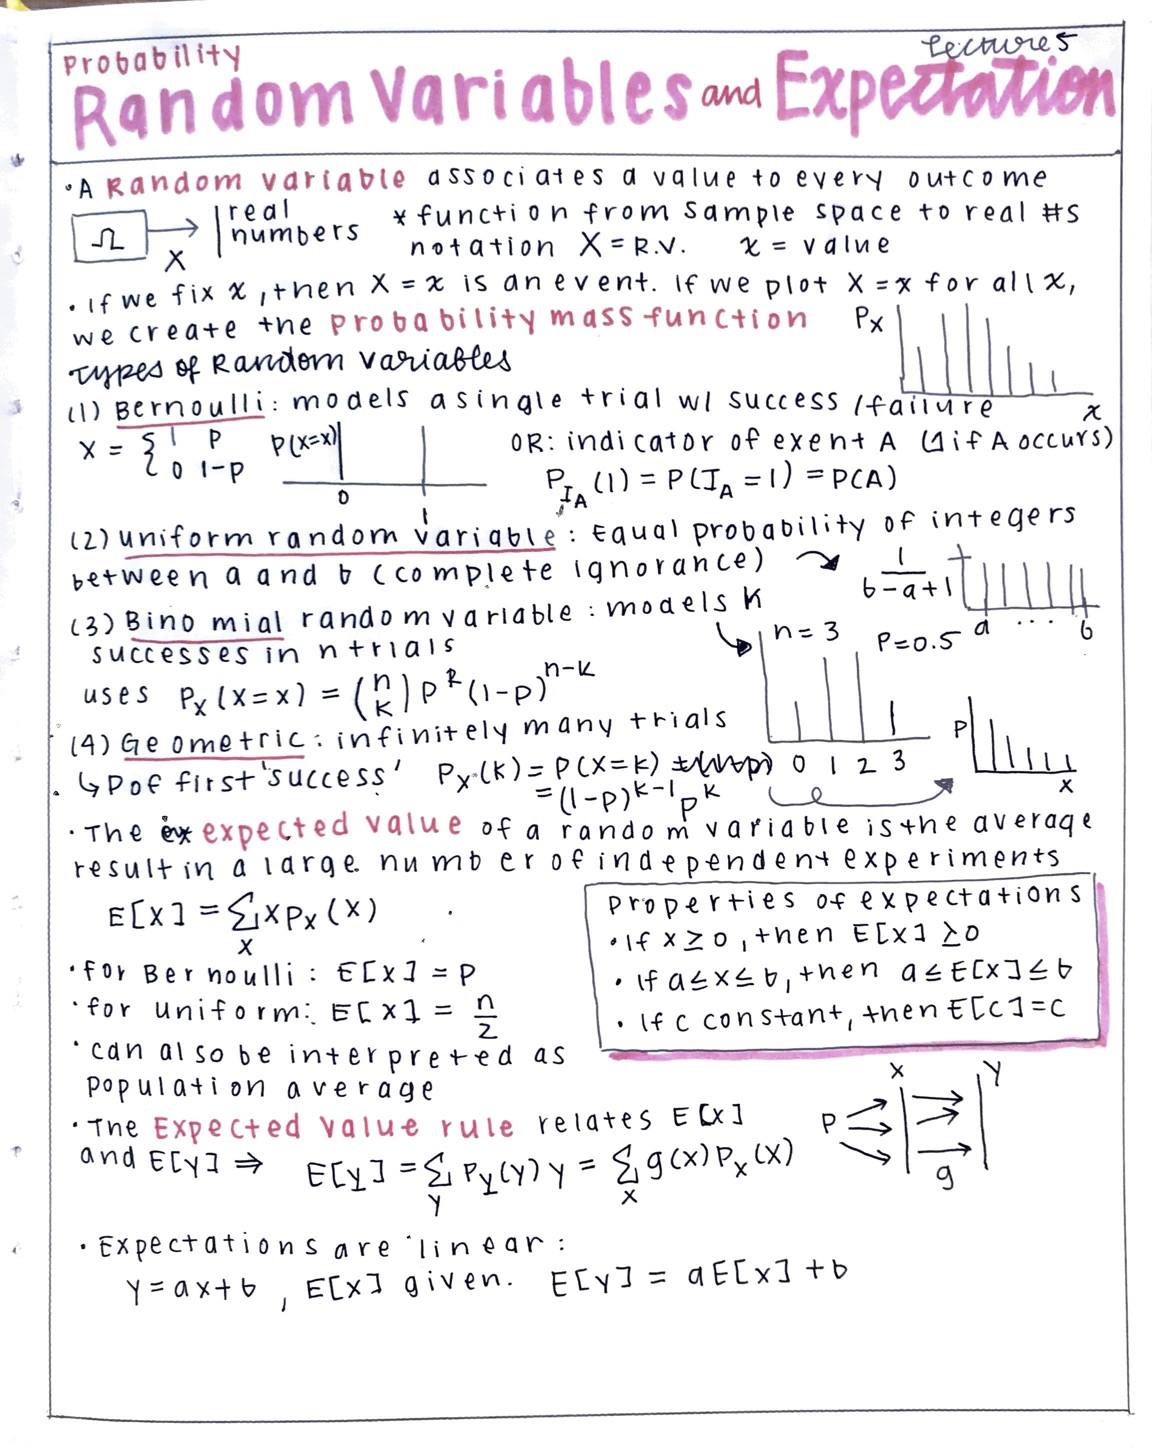 Probability
Lecture 5
Random Variables and Expectation
• A Random variable associates a value to every outcome
Ω X real numbers
* function from sample space to real #s
notation X = R.V. x = value
• If we fix x, then X = x is an event. If we plot X = x for all x,
we create the probability mass function
Px
x
Types of Random Variables
(1) Bernoulli: models a single trial w/ success / failure
X = { 1 p
0 1-p
P(X=x)
0 1
OR: indicator of exent A (1 if A occurs)
P_{I_A}(1) = P(I_A = 1) = P(A)
(2) uniform random variable: Equal probability of integers
between a and b (complete ignorance)
1/(b-a+1)
a ... b
(3) Binomial random variable: models K
successes in n trials
n = 3 P=0.5
uses P_X(X=x) = (n K) p^k (1-p)^{n-k}
0 1 2 3
(4) Geometric: infinitely many trials
↳ P of first 'success' P_X(k) = P(X=k)
= (1-p)^{k-1} p^k
P
x
• The ex expected value of a random variable is the average
result in a large number of independent experiments
E[X] = Σ_x x p_X(x)
• for Bernoulli: E[X] = p
• for uniform: E[X] = n/2
• can also be interpreted as
population average
Properties of expectations
• If x ≥ 0, then E[x] ≥ 0
• If a ≤ x ≤ b, then a ≤ E[x] ≤ b
• If c constant, then E[c] = c
• The Expected value rule relates E[X]
and E[y] ⇒ E[y] = Σ_y P_y(y) y = Σ_x g(x) P_x(x)
P X Y
g
• Expectations are linear:
Y = ax + b, E[X] given. E[y] = aE[x] + b